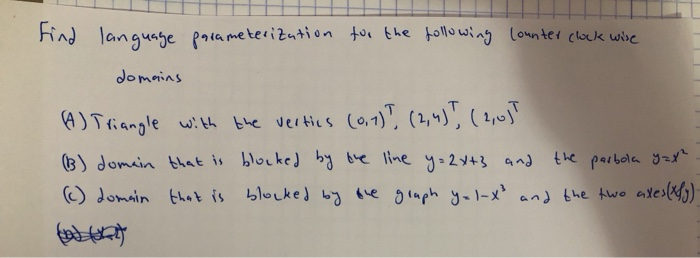 Find language parameterization for the following counter clock wise
domains
(A) Triangle with the vertics (0,1)ᵀ, (2,4)ᵀ, (2,0)ᵀ
(B) domain that is blocked by the line y=2x+3 and the parbola y=x²
(C) domain that is blocked by the graph y=1-x³ and the two axes(x&y)